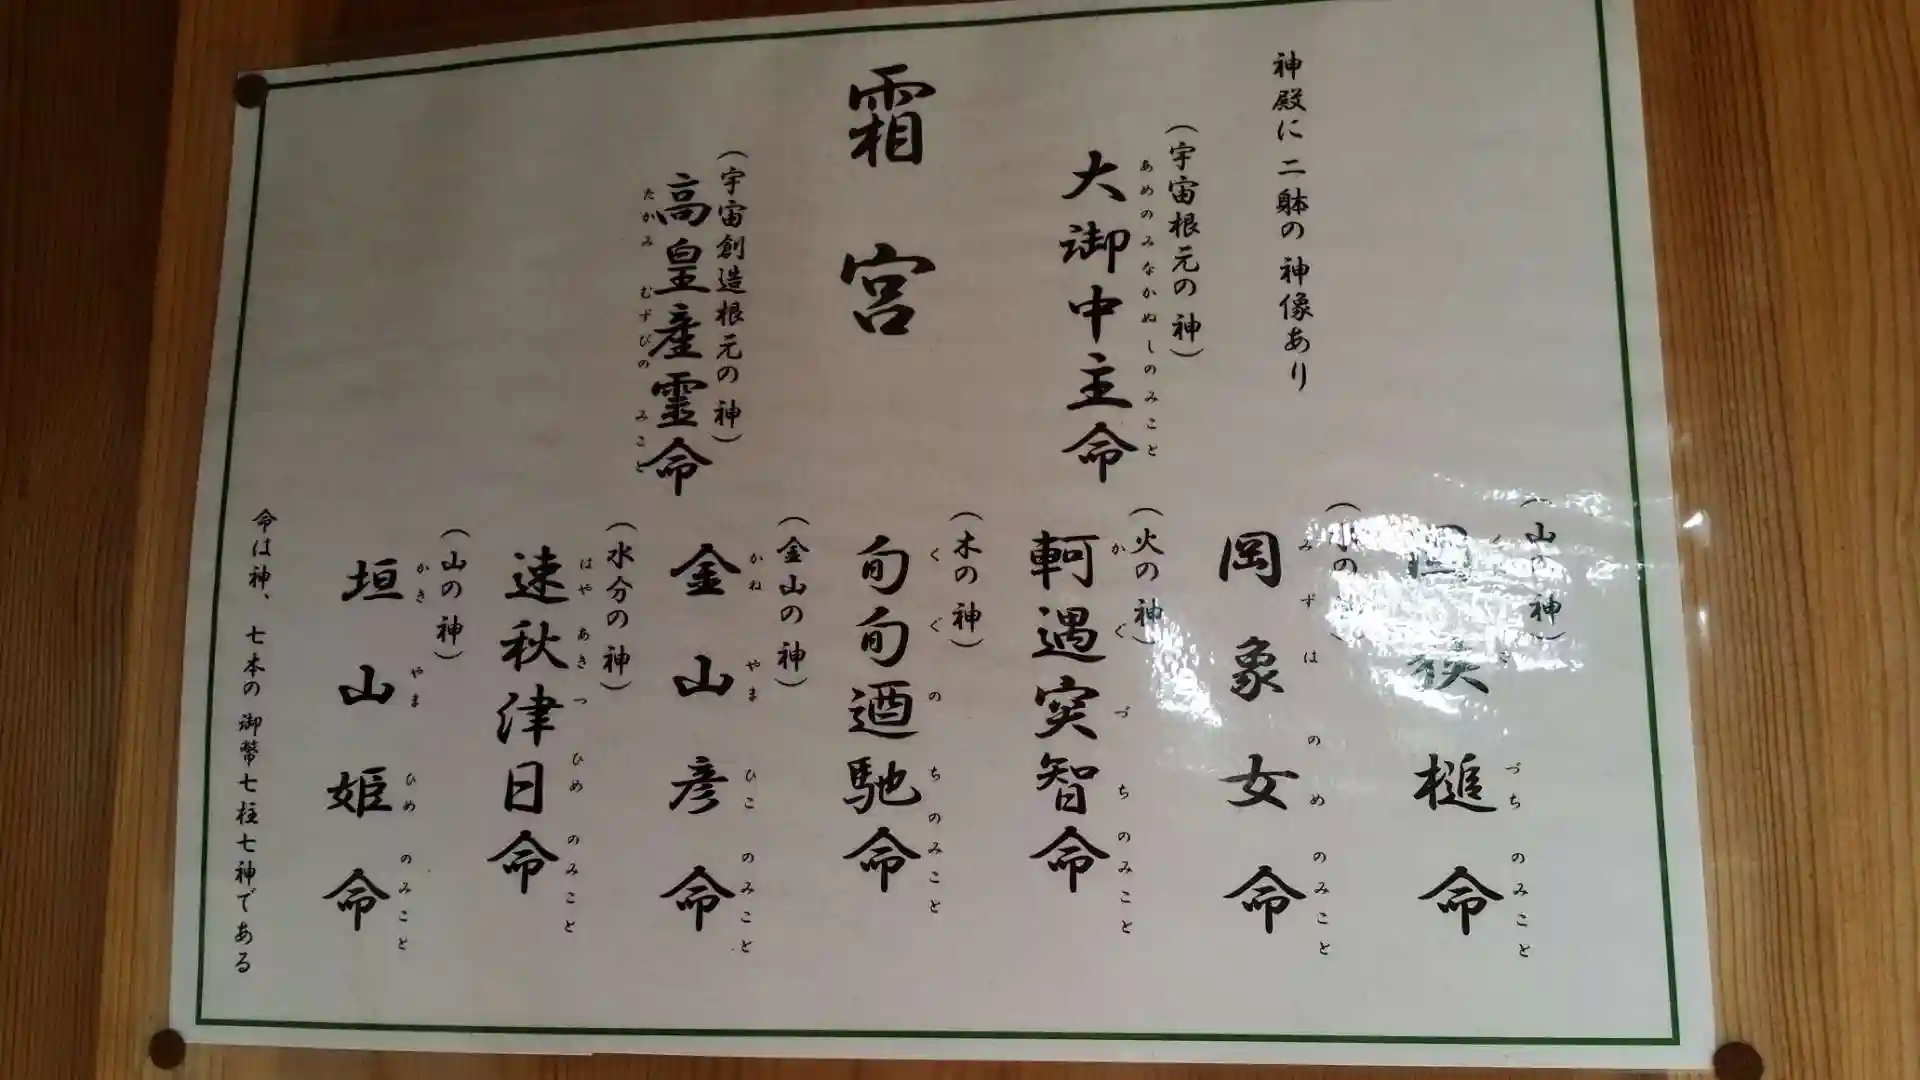 神殿に二躰の神像あり
(宇宙根元の神)
あめのみなかぬしのみこと
大御中主命
霜宮
(宇宙創造根元の神)
高皇産霊命
たかみむずびのみこと
(山の神)
づちのみこと
槌命
みずはのめのみこと
岡象女命
(火の神)
かぐづちのみこと
軻遇突智命
(木の神)
くぐのちのみこと
句句迺馳命
(金山の神)
かねやまひこのみこと
金山彦命
(水分の神)
はやあきつひめのみこと
速秋津日命
(山の神)
かきやまひめのみこと
垣山姫命
命は神、七本の御幣七柱七神である